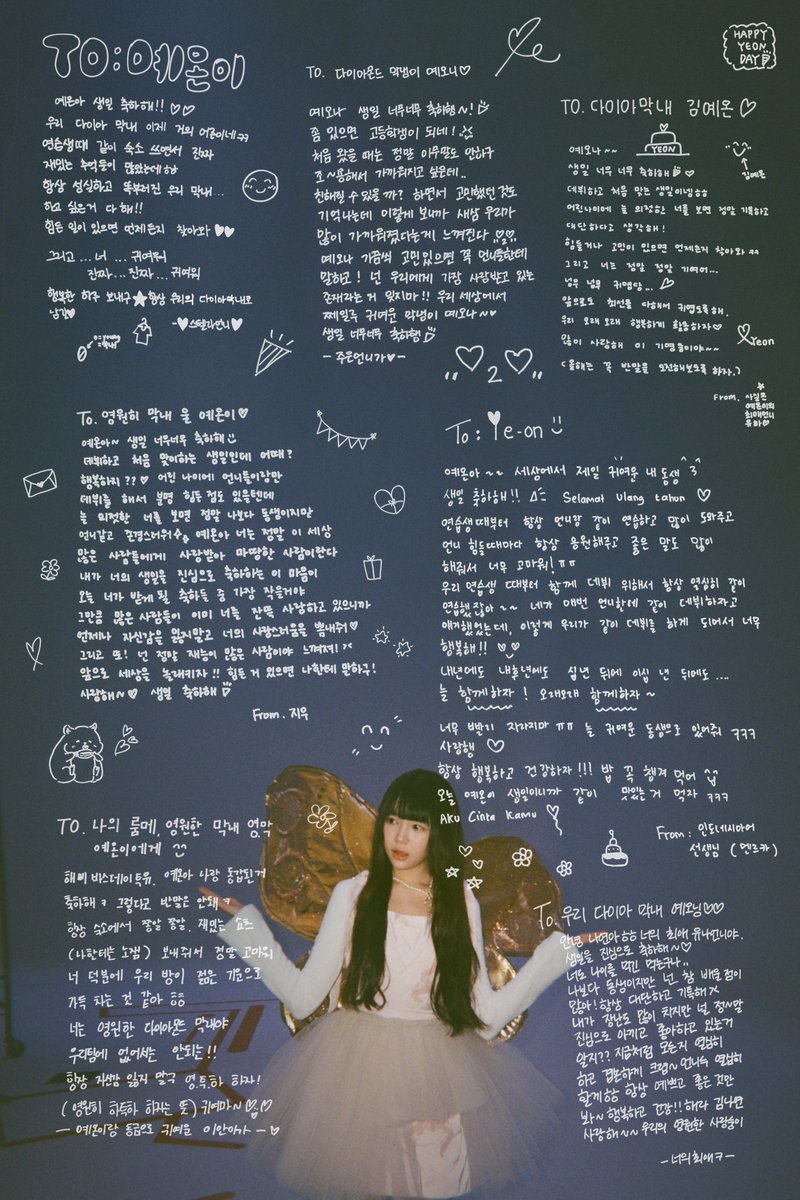 TO: 예온이
예온아 생일 축하해!! ♡♡
우리 다이아 막내 이제 거의 어른이네ㅋㅋ
연습생때 같이 숙소 쓰면서 진짜
재밌는 추억들이 많았는데ㅎㅎ
항상 성실하고 똑부러진 우리 막내...
하고 싶은거 다 해!!
힘든 일이 있으면 언제든지 찾아와 ♥♥
그리고... 너 ... 귀여워
진짜... 진짜... 귀여워
행복한 하루 보내구 ★ 항상 우리의 다이아막내로
남길♥
-♥스텔라언니♥
TO. 다이아몬드 막냉이 예오니♡
예오나 생일 너무너무 축하행~!
좀 있으면 고등학생이 되네!
처음 왔을 때는 정말 아무말도 안하구
조~용해서 가까워지고 싶은데..
친해질 수 있을까? 하면서 고민했던 것도
기억나는데 이렇게 보니까 새삼 우리가
많이 가까워졌다는게 느껴진다
예오나 가끔씩 고민 있으면 꼭 언니들한테
말하고! 넌 우리에게 가장 사랑받고 있는
존재라는 거 잊지마!! 우리 세상에서
제일루 귀여운 막냉이 예오나~♡
생일 너무너무 축하행
-주은언니가♥-
HAPPY
YEON
DAY
TO. 다이아막내 김예온 ♡
YEON
김예온
예오나~~
생일 너무 너무 축하해
데뷔하고 처음 맞는 생일이넹ㅎㅎ
어린나이에 늘 의젓한 너를 보면 정말 기특하고
대단하다고 생각해!
힘들거나 고민이 있으면 언제든지 찾아와 ㅋㅋ
그리고 너는 정말 정말 귀여어...
넘우 넘우 귀염당... ♡
앞으로도 최선을 다해서 귀엽도록해.
우리 오래 오래 행복하게 활동하자♡
많이 사랑해 이 기염둥이야~~
(올해는 꼭 반말을 도전해보도록 하자.)
Yeon
From. 사실은
예온이의
최애언니
유하♡
2
TO. 영원히 막내 울 예온이♡
예온아~ 생일 너무너무 축하해
데뷔하고 처음 맞이하는 생일인데 어때?
행복하지?? ♡ 어린 나이에 언니들이랑만
데뷔를 해서 분명 힘든 점도 있을텐데
늘 의젓한 너를 보면 정말 나보다 동생이지만
언니같고 존경스러워 예온아 너는 정말 이 세상
많은 사람들에게 사랑받아 마땅한 사람이란다
내가 너의 생일을 진심으로 축하하는 이 마음이
오늘 너가 받게 될 축하들 중 가장 작을거야
그만큼 많은 사람들이 이미 너를 잔뜩 사랑하고 있으니까
언제나 자신감을 잃지말고 너의 사랑스러움을 뽐내줘♡
그리고 또! 넌 정말 재능이 많은 사람이야 느껴져!
앞으로 세상을 놀래키자!! 힘든 거 있으면 나한테 말하구!
사랑해~♡ 생일 축하해
From. 지우
To: Ye-on
예온아~~ 세상에서 제일 귀여운 내 동생
생일 축하해!! Selamat ulang tahun ♡
연습생때부터 항상 언니랑 같이 연습하고 많이 도와주고
언니 힘들때마다 항상 응원해주고 좋은 말도 많이
해줘서 너무 고마워!ㅠㅠ
우리 연습생 때부터 함께 데뷔 위해서 항상 열심히 같이
연습했잖아~~ 네가 매번 언니한테 같이 데뷔하자고
얘기했었는데, 이렇게 우리가 같이 데뷔를 하게 되어서 너무
행복해!! ♡♡
내년에도 내후년에도 십년 뒤에 이십 년 뒤에도 ....
늘 함께하자! 오래오래 함께하자~
너무 빨리 자라지마 ㅠㅠ 늘 귀여운 동생으로 있어줘 ㅋㅋㅋ
사랑행 ♡
항상 행복하고 건강하자!!! 밥 꼭 챙겨 먹어
오늘 예온이 생일이니까 같이 맛있는 거 먹자 ㅋㅋㅋ
AKU Cinta Kamu ♡
From: 인도네시아어
선생님 (멘토카)
TO. 나의 룸메, 영원한 막내 영막
예온이에게
해삐 바스데이투유, 예온아 나랑 동갑된거
축하해ㅋ 그렇다고 반말은 안돼ㅋ
항상 숙소에서 쫑알 쫑알, 재밌는 쇼츠
(나한테는 노잼) 보내줘서 정말 고마워
너 덕분에 우리 방이 젊은 기운으로
가득 차는 것 같아
너는 영원한 다이아몬드 막내야
우리팀에 없어서는 안되는!!
항상 자신감 잃지 말구 영.특.하 하자!
(영원히 하자는 뜻) 귀여미~♡
- 예온이랑 동급으로 귀여운 이안이가 -♡
To. 우리 다이아 막내 예오닝♡♡
생일을 진심으로 축하해~♡
너도 나이를 먹긴 먹는구나..
나보다 동생이지만 넌 참 배울 점이
많아! 항상 대단하고 기특해ㅋ
내가 장난도 많이 치지만 넌 정~말
진심으로 아끼고 좋아하고 있는거
알지?? 지금처럼 모든지 열심히
하고 언니숙 열심히
할게ㅎㅎ 항상 예쁘고 좋은 것만
봐~ 행복하고 건강!! 해라
사랑해~~ 우리의 영원한 사랑둥이
-너의 최애ㅋ-